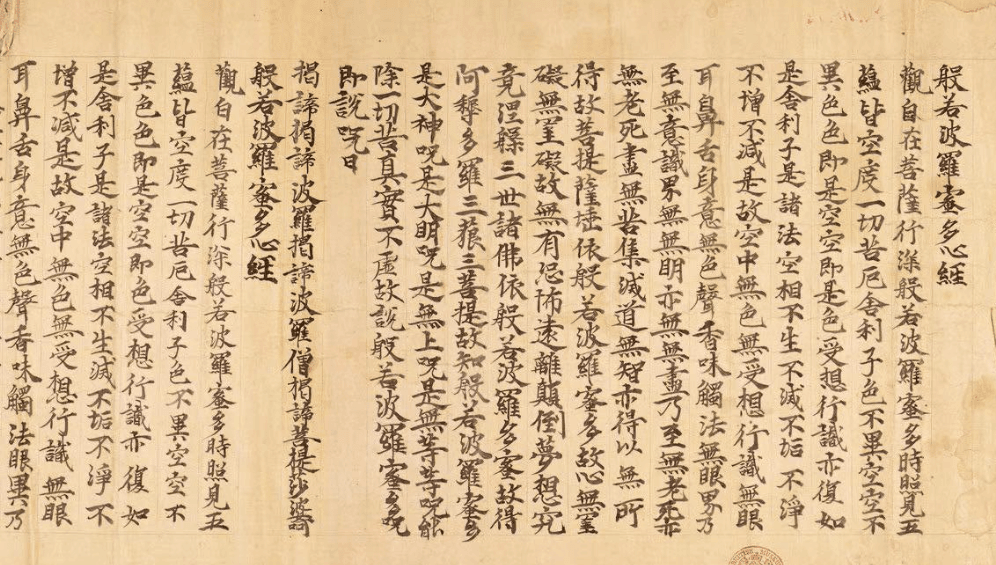 般若波羅蜜多心經
觀自在菩薩行深般若波羅蜜多時照見五
蘊皆空度一切苦厄舍利子色不異空空不
異色色即是空空即是色受想行識亦復如
是舍利子是諸法空相不生不滅不垢不淨
不增不減是故空中無色無受想行識無眼
耳鼻舌身意無色聲香味觸法無眼界乃
至無意識界無無明亦無無盡乃至無老死亦
無老死盡無苦集滅道無智亦得以無所
得故菩提薩埵依般若波羅蜜多故心無罣
礙無罣礙故無有恐怖遠離顛倒夢想究
竟涅槃三世諸佛依般若波羅多蜜故得
阿耨多羅三藐三菩提故知般若波羅蜜多
是大神呪是大明呪是無上呪是無等等呪能
除一切苦真實不虛故說般若波羅蜜多呪
即說呪曰
揭諦揭諦波羅揭諦波羅僧揭諦菩提莎婆訶
般若波羅蜜多心經
觀自在菩薩行深般若波羅蜜多時照見五
蘊皆空度一切苦厄舍利子色不異空空不
異色色即是空空即是色受想行識亦復如
是舍利子是諸法空相不生不滅不垢不淨不
增不減是故空中無色無受想行識無眼
耳鼻舌身意無色聲香味觸法眼界乃